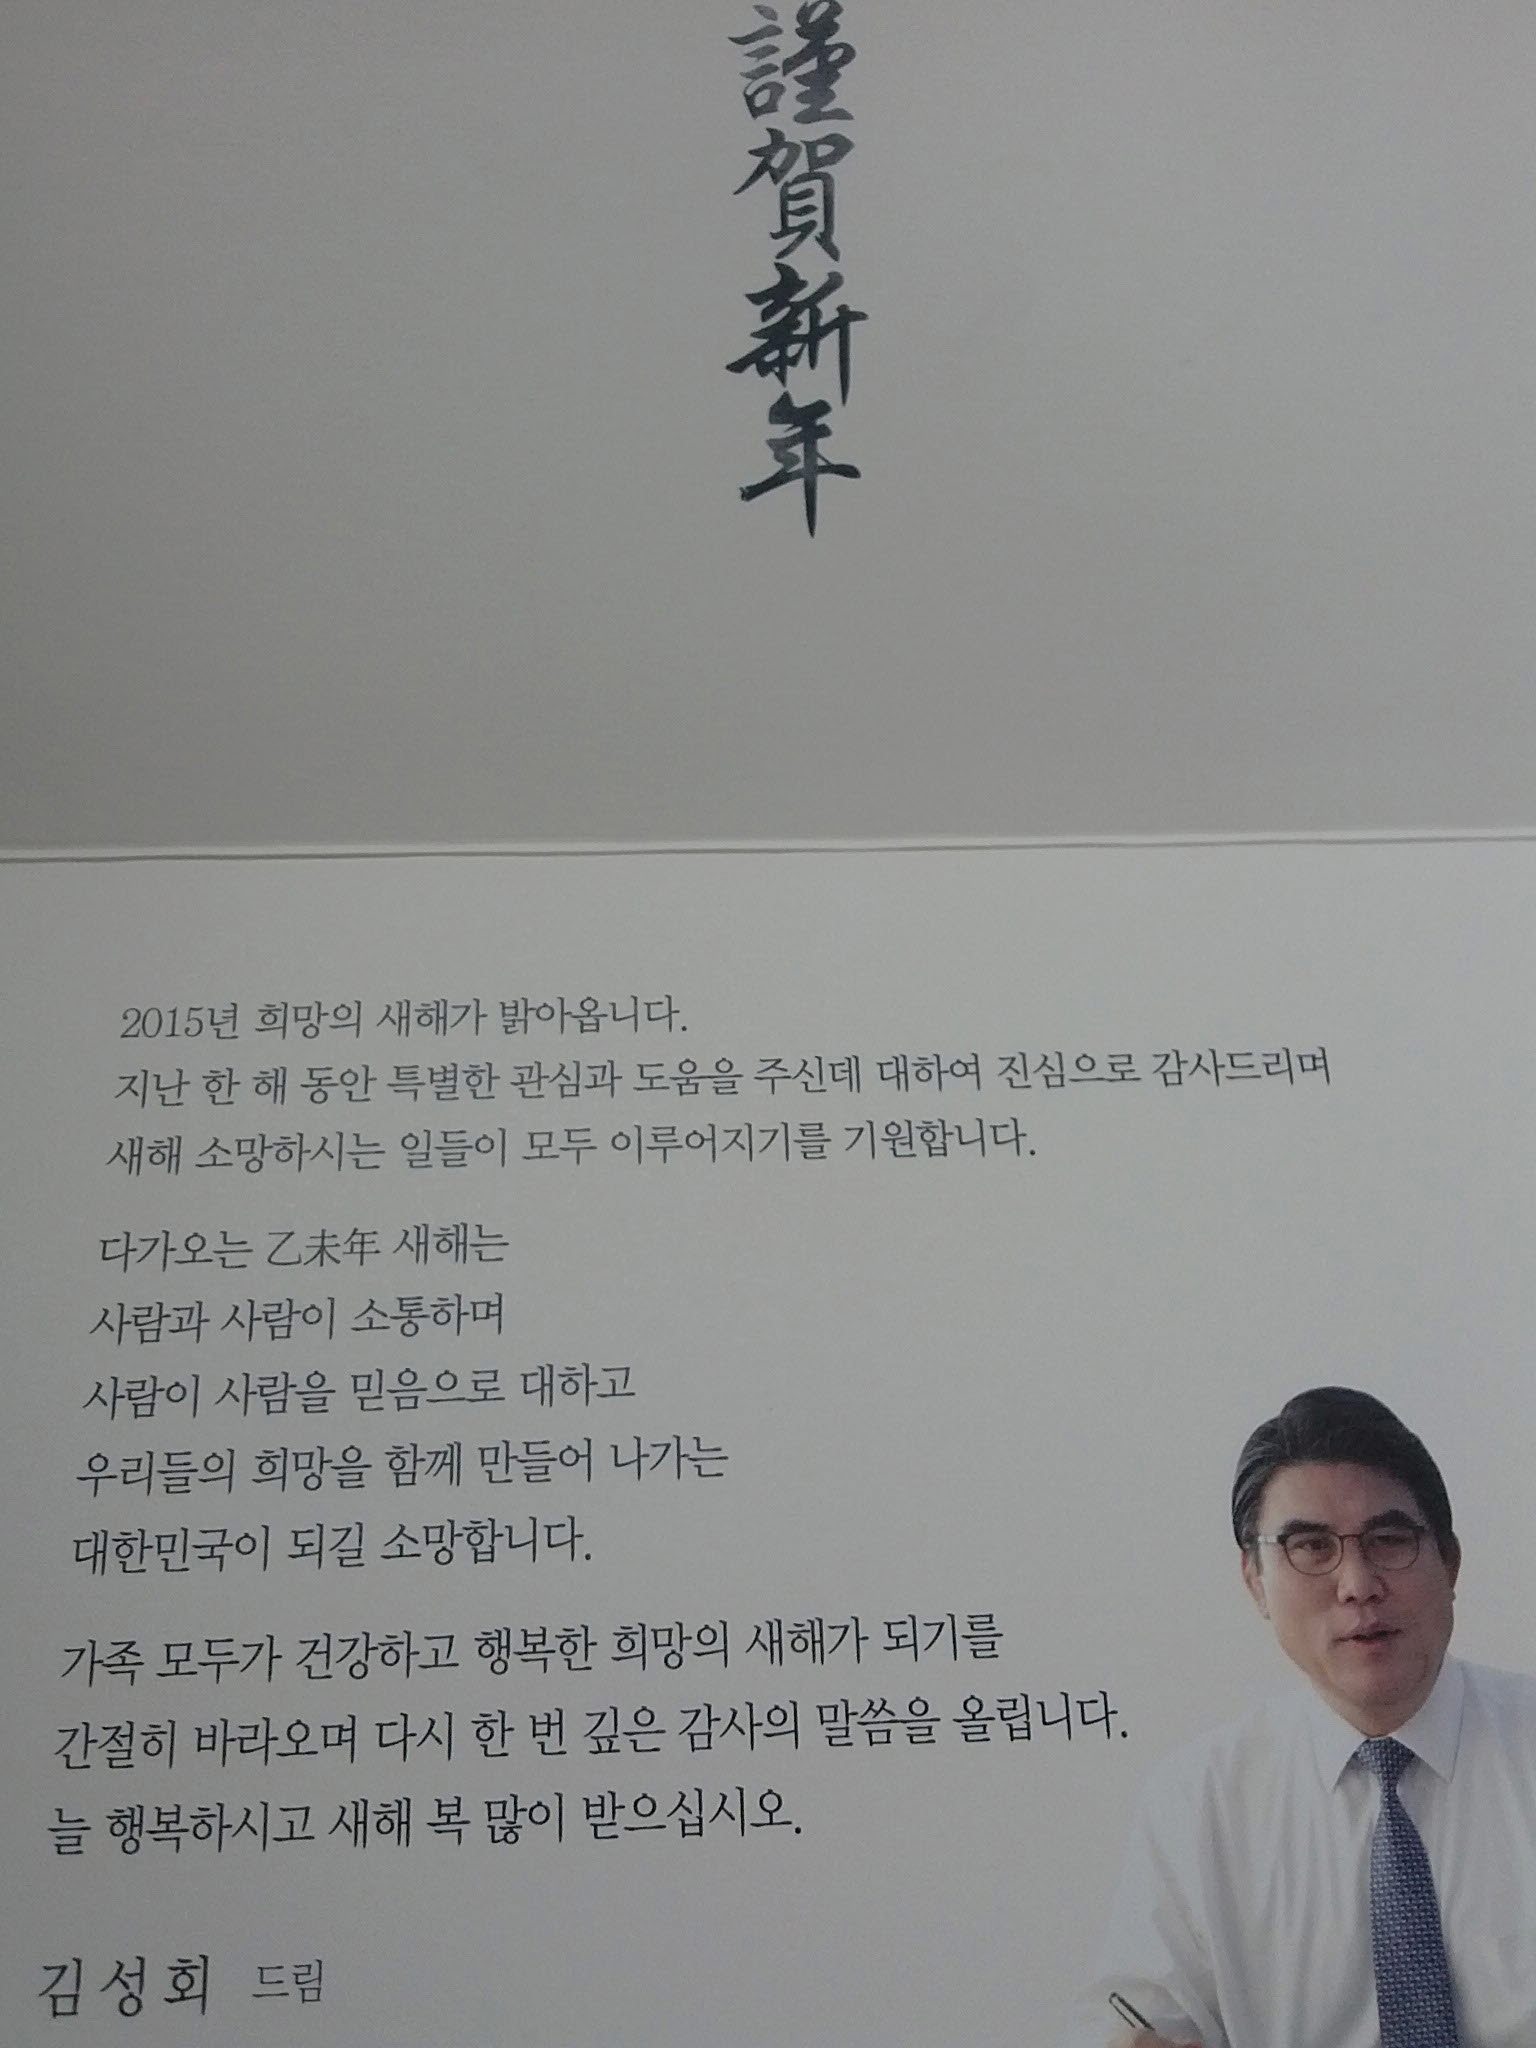 謹賀新年
2015년 희망의 새해가 밝아옵니다.
지난 한 해 동안 특별한 관심과 도움을 주신데 대하여 진심으로 감사드리며
새해 소망하시는 일들이 모두 이루어지기를 기원합니다.
다가오는 乙未年 새해는
사람과 사람이 소통하며
사람이 사람을 믿음으로 대하고
우리들의 희망을 함께 만들어 나가는
대한민국이 되길 소망합니다.
가족 모두가 건강하고 행복한 희망의 새해가 되기를
간절히 바라오며 다시 한 번 깊은 감사의 말씀을 올립니다.
늘 행복하시고 새해 복 많이 받으십시오.
김성회 드림